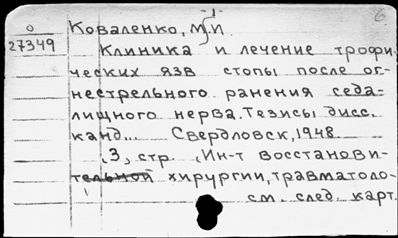 -1-
6
0
27349
Коваленко, М.И.
Клиника и лечение трофи-
ческих язв стопы после ог-
нестрельного ранения седа-
лищного нерва. Тезисы дисс.
канд... Свердловск, 1948.
3, стр. Ин-т восстанови-
тельной хирургии, травматоло-
см. след. карт.